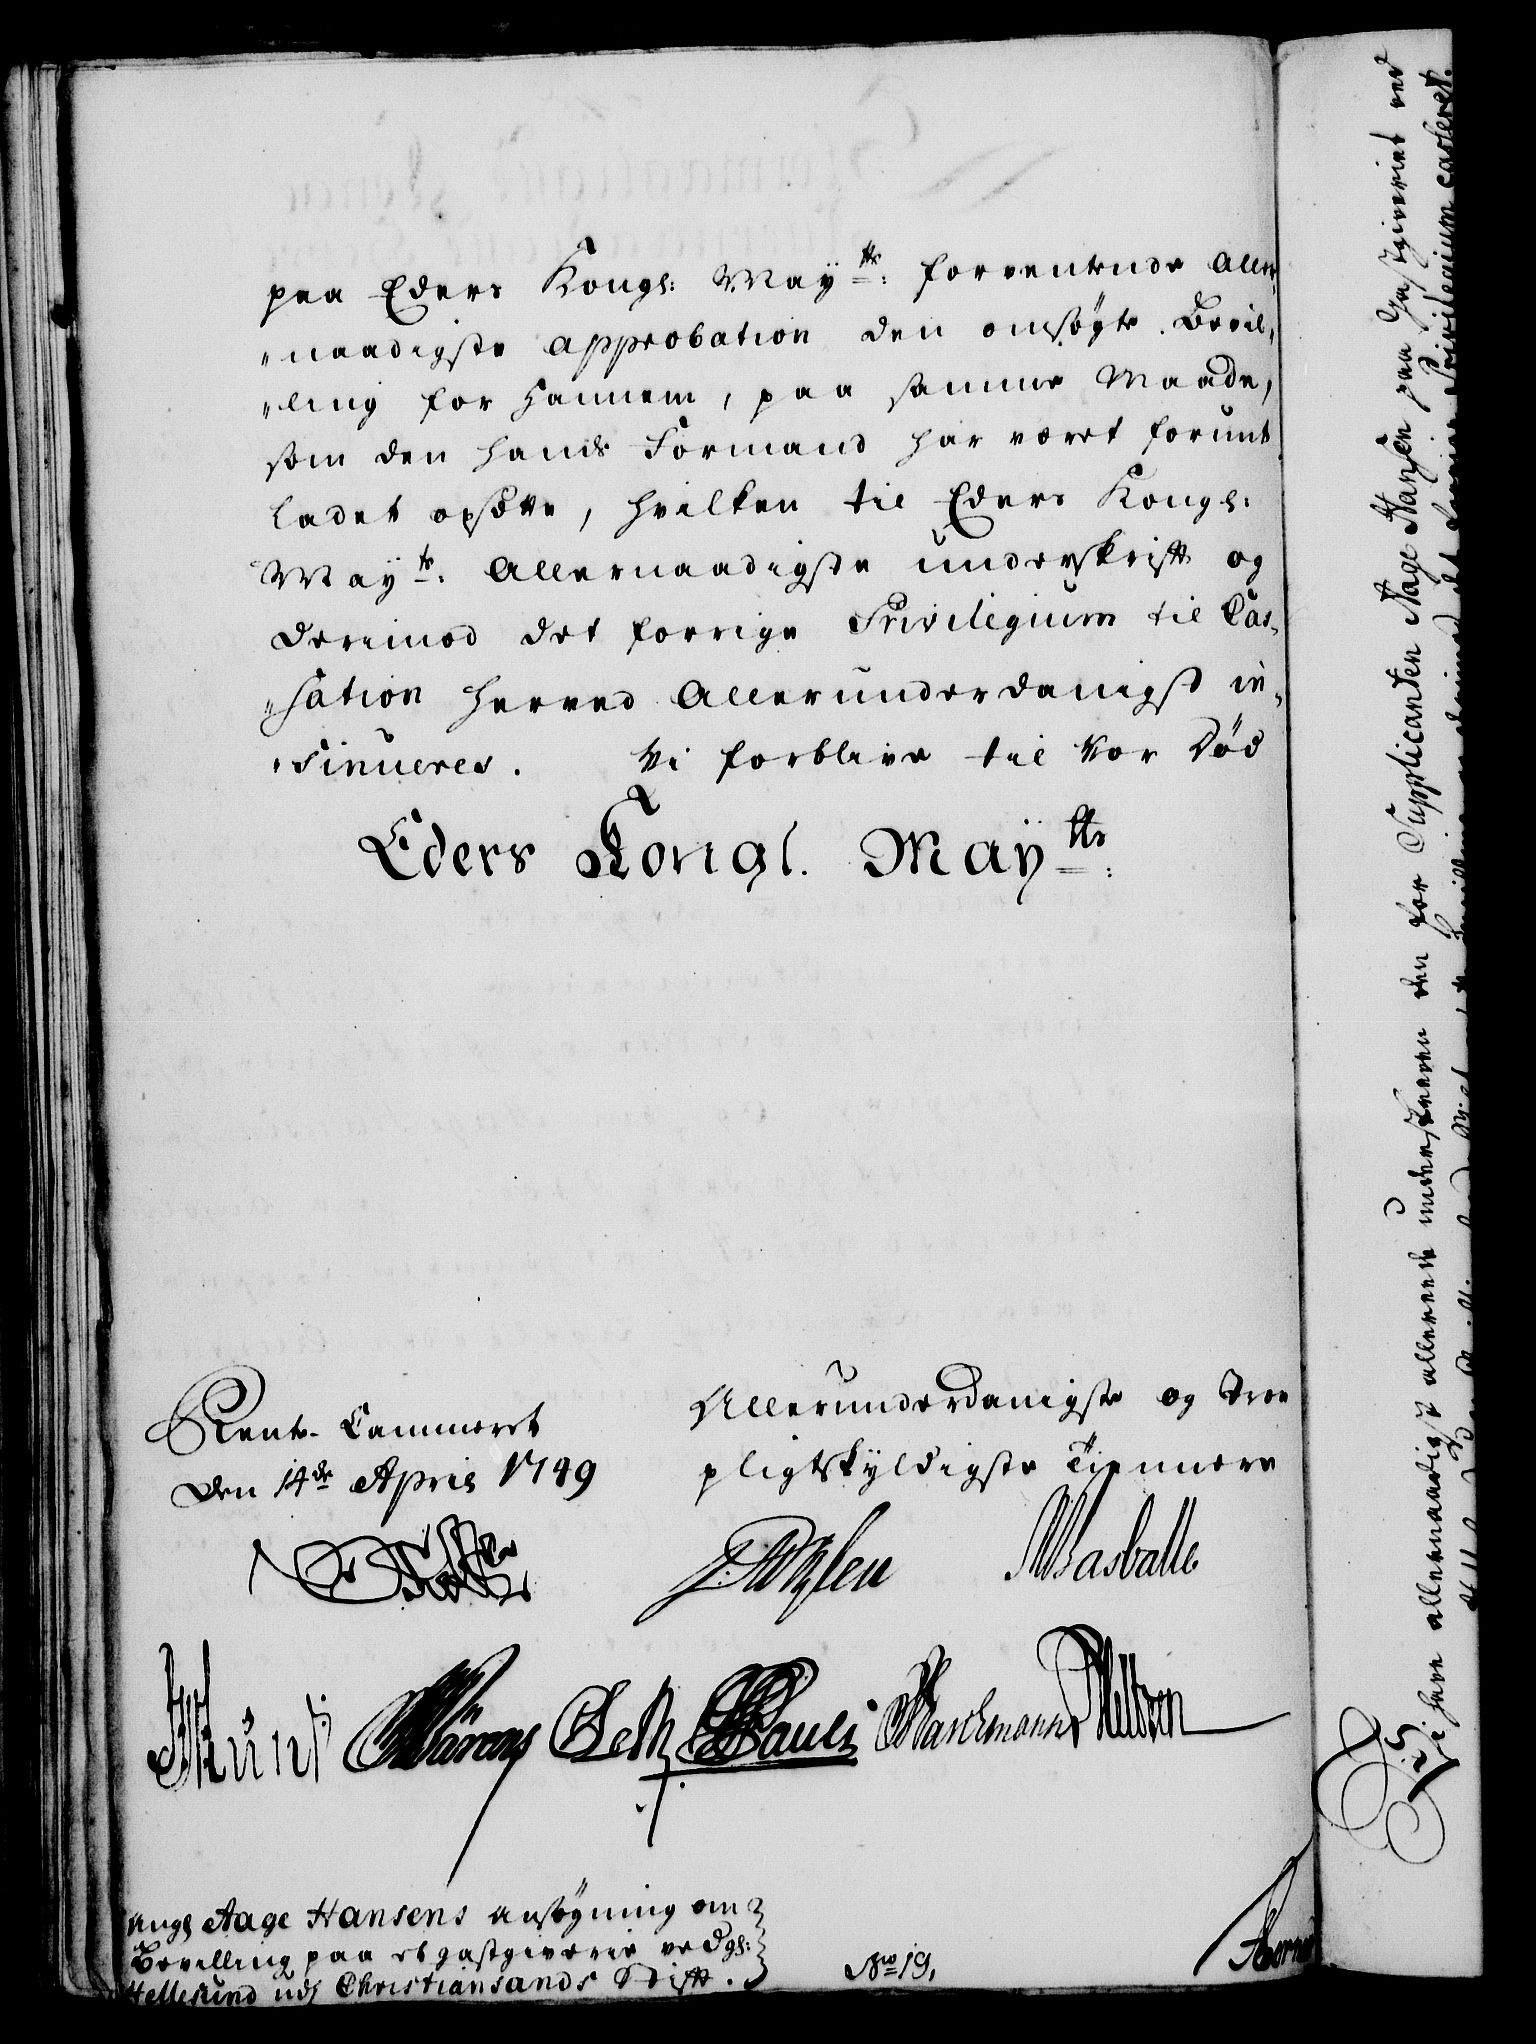 paa Eders Kongl: Maÿtts: forventende Aller,
„naadigste approbation den omsøgte Bevil,
„ling for hannem, paa samme Maade,
som den hands Formand har været forunt
ladet opsætte, hvilken til Eders Kongl:
Maÿts: Allernaadigste underskrifft og
derimod det forrige Privilegium til Cas,
„sation herved Allerunderdanigst in,
„sinueres. Vi forblive til Vor Død
Eders Kongl. Maÿtts:
Rente-Cammeret
den 14de April 1749
Allerunderdanigste og Troe
pligtskyldigste Tiennere
Münt Wärens Seth Pauli Raschmann
ang Aage Hansens ansøgning om
Bevilling paa et gastgiverie ved gl:
Hellesund udj Christiansands Stifft.
No 19,
Vi have allernaadigst allerede underskreven den for Supplicanten Aage Hansen paa Gastgiveriet ved
Privilegium casseret.